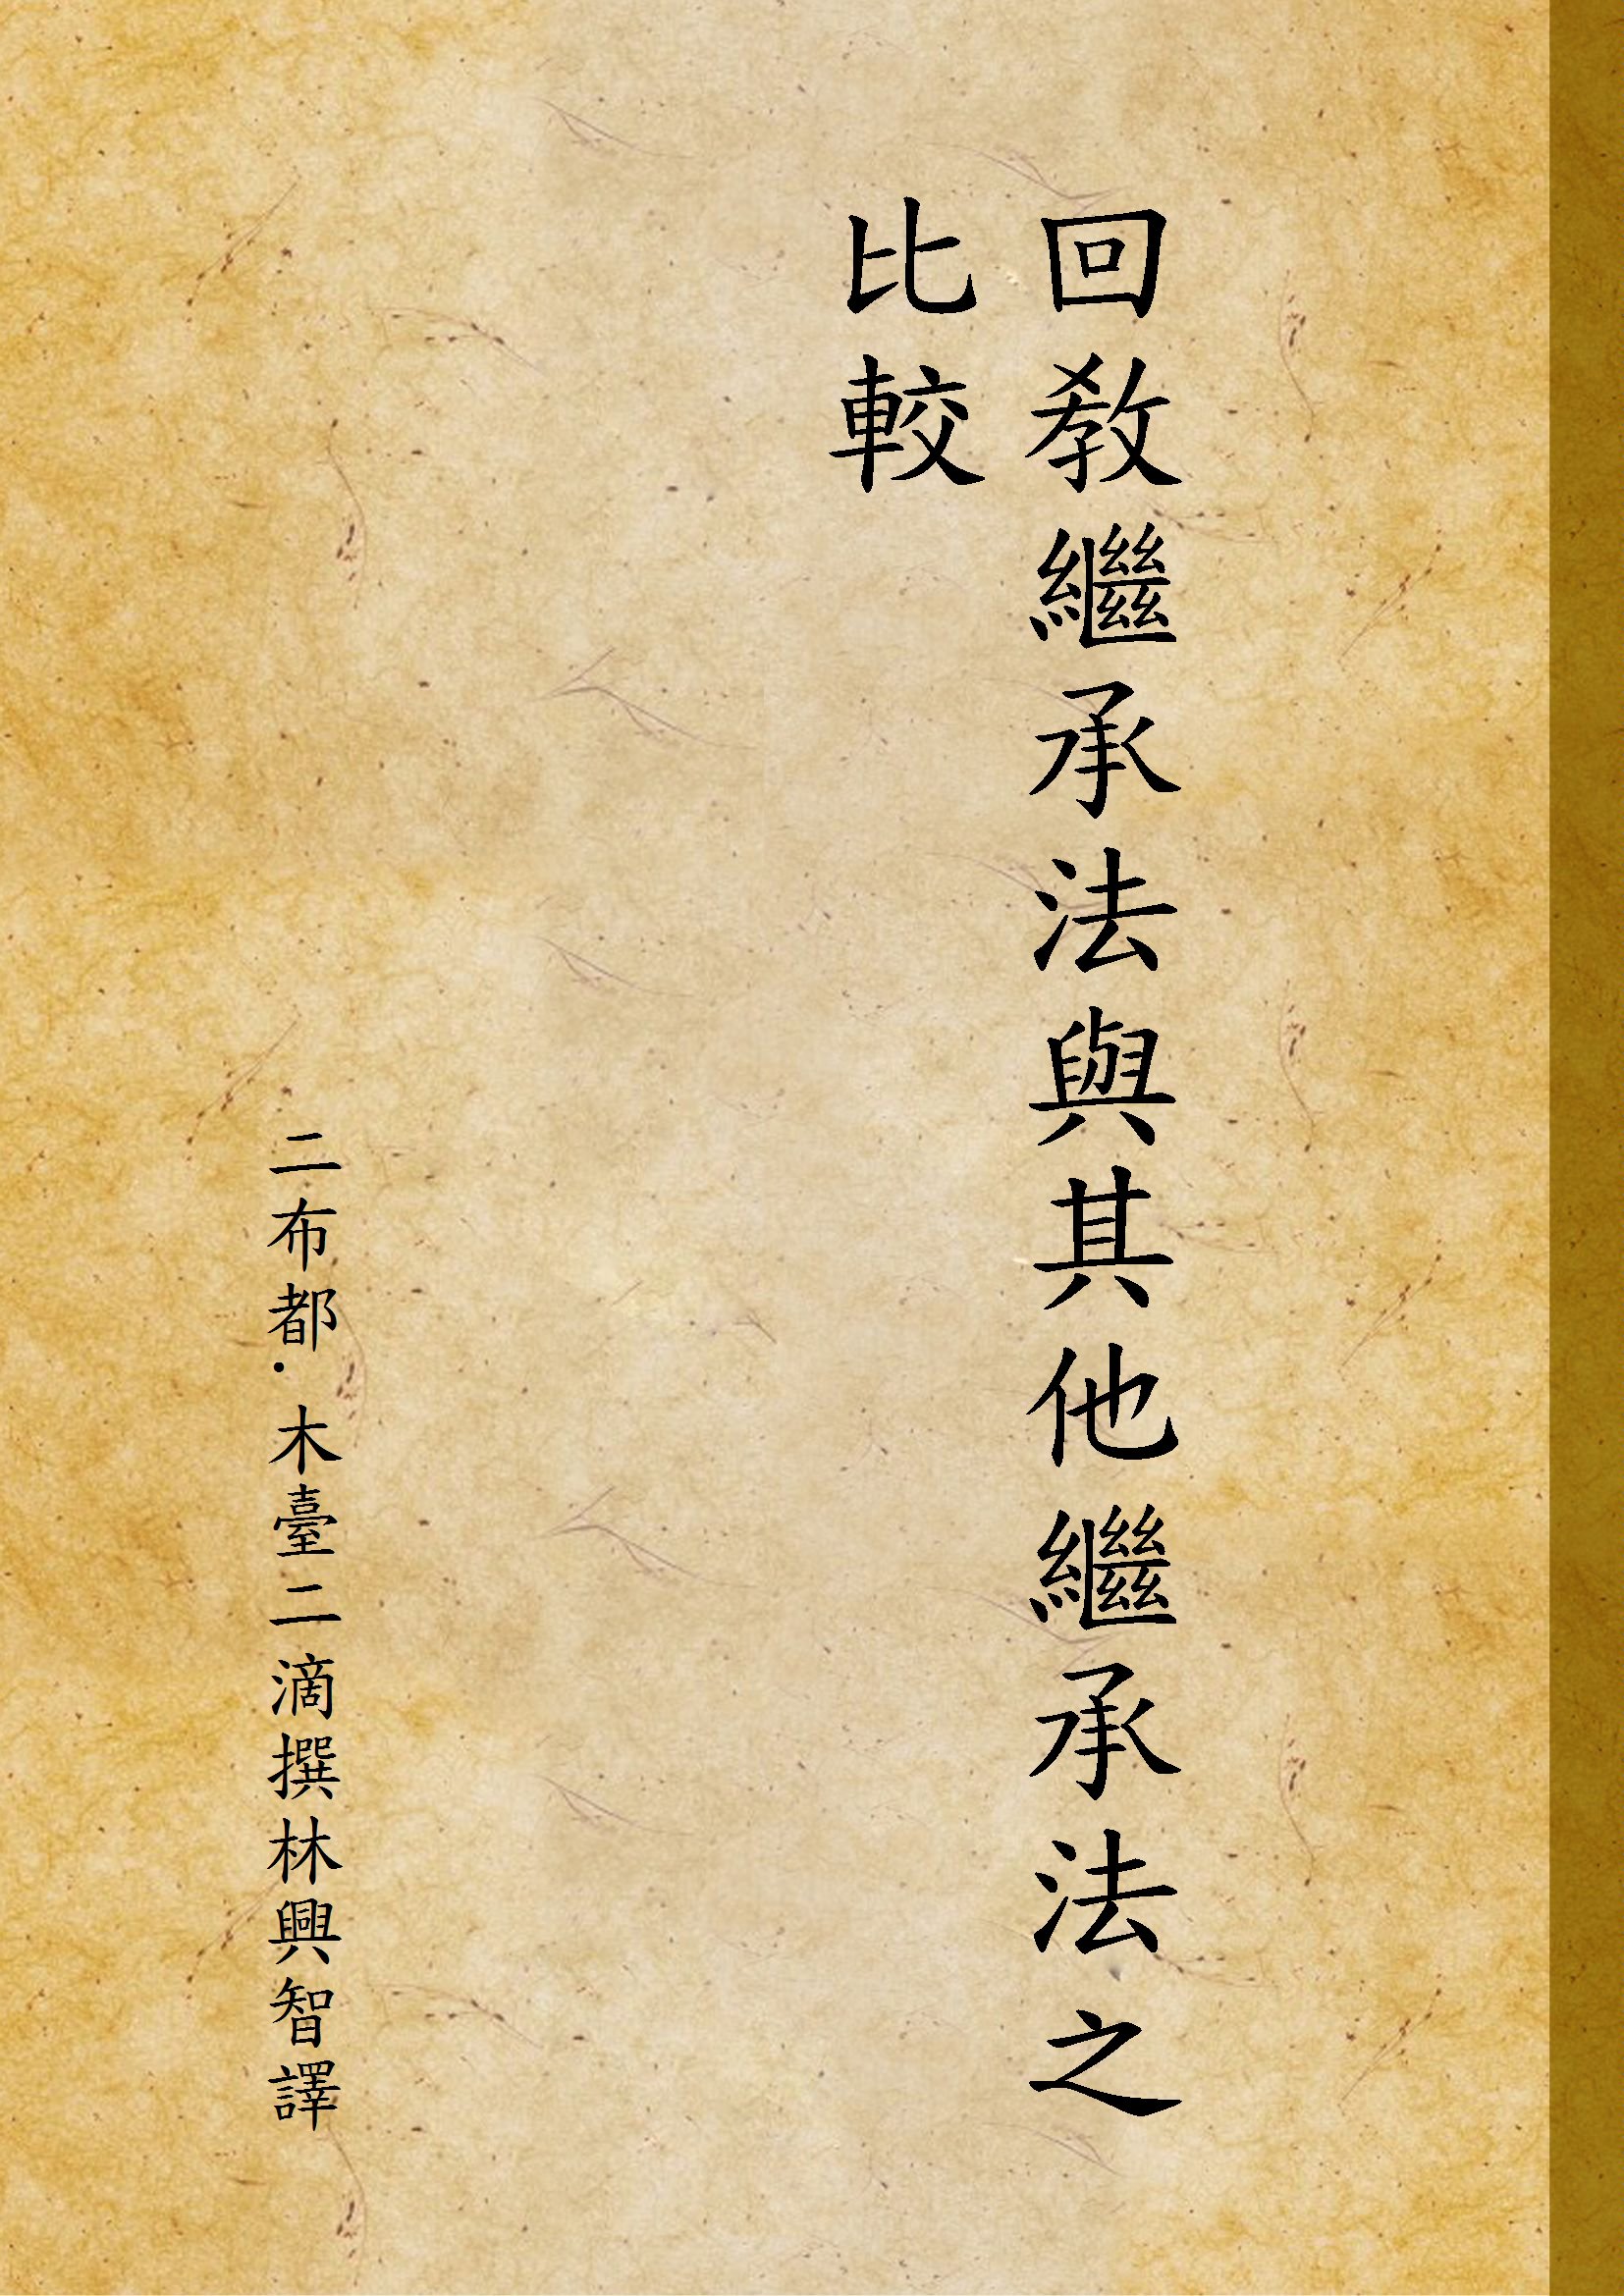 回敎繼承法與其他繼承法之
比較
二布都·木臺二滴撰林興智譯